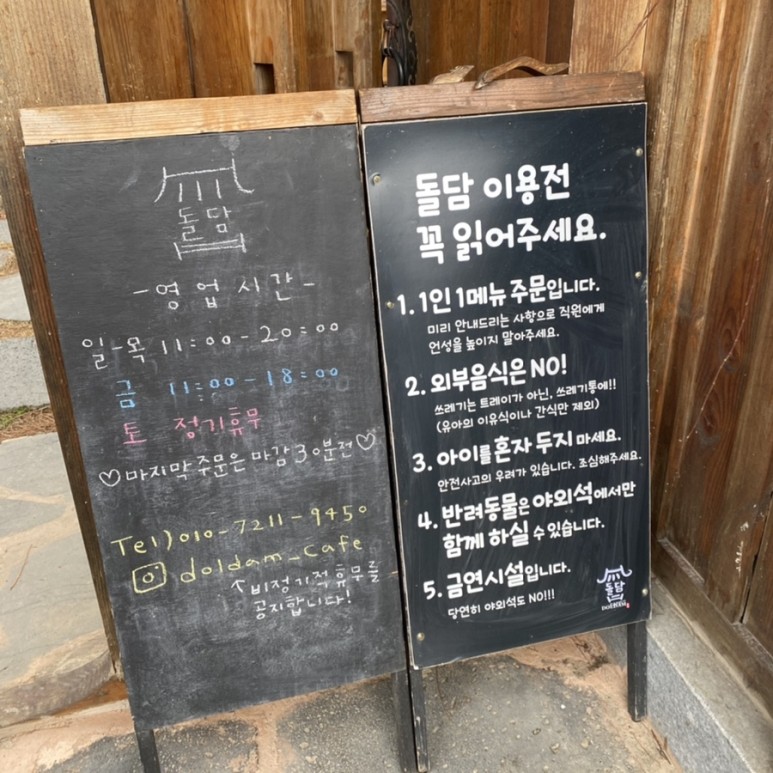 돌담
-영업시간-
일-목 11:00-20:00
금 11:00-18:00
토 정기휴무
♡마지막 주문은 마감 30분전♡
Tel) 010-7211-9450
doldam_cafe
↑비정기적 휴무를
공지합니다!
돌담 이용전
꼭 읽어주세요.
1. 1인 1메뉴 주문입니다.
미리 안내드리는 사항으로 직원에게
언성을 높이지 말아주세요.
2. 외부음식은 NO!
쓰레기는 트레이가 아닌, 쓰레기통에!!
(유아의 이유식이나 간식만 제외)
3. 아이를 혼자 두지 마세요.
안전사고의 우려가 있습니다. 조심해주세요.
4. 반려동물은 야외석에서만
함께 하실 수 있습니다.
5. 금연시설입니다.
당연히 야외석도 NO!!!
돌담